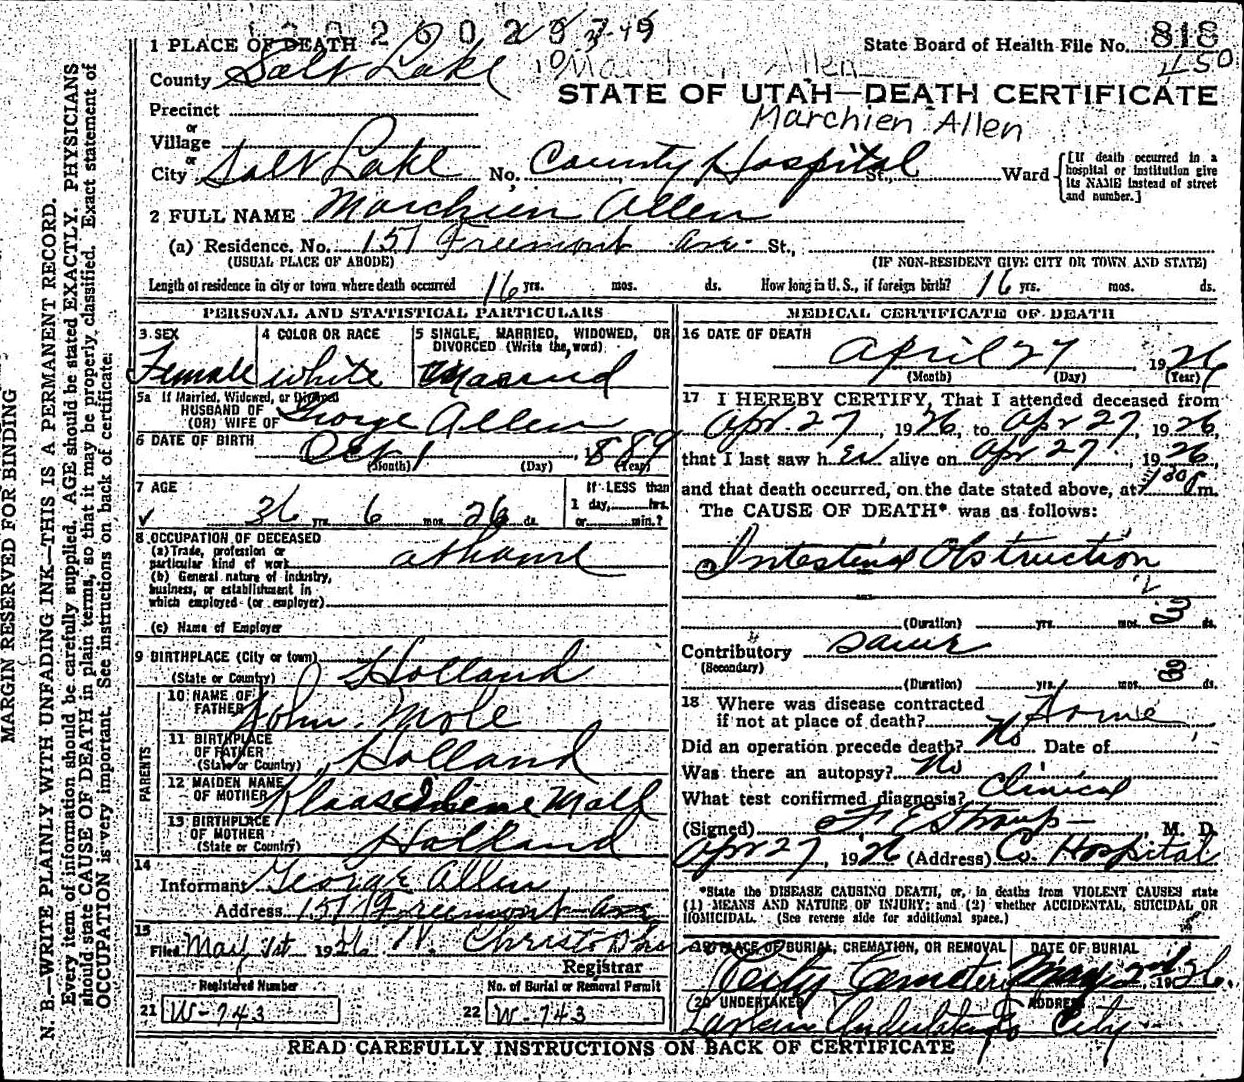 1302602 9 3-49
1 PLACE OF DEATH
State Board of Health File No. 818
450
County Salt Lake
Marchien Allen
STATE OF UTAH—DEATH CERTIFICATE
Marchien Allen
Precinct
or
Village
or
City Salt Lake No. County Hospital St., Ward
[If death occurred in a hospital or institution give its NAME instead of street and number.]
2 FULL NAME Marchien Allen
(a) Residence. No. 151 Freemont Ave. St.,
(USUAL PLACE OF ABODE) (IF NON-RESIDENT GIVE CITY OR TOWN AND STATE)
Length of residence in city or town where death occurred 16 yrs. mos. ds. How long in U. S., if foreign birth? 16 yrs. mos. ds.
PERSONAL AND STATISTICAL PARTICULARS
3 SEX 4 COLOR OR RACE 5 SINGLE, MARRIED, WIDOWED, OR DIVORCED (Write the word)
Female white Married
5a If Married, Widowed, or Divorced
HUSBAND OF
(OR) WIFE OF George Allen
6 DATE OF BIRTH Oct 1 1889
(Month) (Day) (Year)
7 AGE If LESS than
1 day, hrs.
36 yrs. 6 mos. 26 ds. or min.?
8 OCCUPATION OF DECEASED
(a) Trade, profession or
particular kind of work at home
(b) General nature of industry,
business, or establishment in
which employed (or employer)
(c) Name of Employer
9 BIRTHPLACE (City or town)
(State or Country) Holland
PARENTS
10 NAME OF
FATHER John Mole
11 BIRTHPLACE
OF FATHER
(State or Country) Holland
12 MAIDEN NAME
OF MOTHER Moll
13 BIRTHPLACE
OF MOTHER
(State or Country) Holland
14
Informant George Allen
Address 151 Freemont Ave
15
Filed May 1st 1926
Registrar
Registered Number No. of Burial or Removal Permit
21 W-743 22 W-743
MEDICAL CERTIFICATE OF DEATH
16 DATE OF DEATH
April 27 1926
(Month) (Day) (Year)
17 I HEREBY CERTIFY, That I attended deceased from
Apr. 27, 1926, to Apr 27, 1926,
that I last saw her alive on Apr 27, 1926,
and that death occurred, on the date stated above, at 1 30 Pm.
The CAUSE OF DEATH* was as follows:
Intestinal Obstruction
(Duration) yrs. mos. ds.
Contributory same
(Secondary)
(Duration) yrs. mos. ds.
18 Where was disease contracted
if not at place of death? Home
Did an operation precede death? No Date of
Was there an autopsy? No
What test confirmed diagnosis? Clinical
(Signed) M. D.
Apr 27, 1926 (Address) Co. Hospital
*State the DISEASE CAUSING DEATH, or, in deaths from VIOLENT CAUSES state
(1) MEANS AND NATURE OF INJURY; and (2) whether ACCIDENTAL, SUICIDAL OR
HOMICIDAL. (See reverse side for additional space.)
19 PLACE OF BURIAL, CREMATION, OR REMOVAL DATE OF BURIAL
City Cemetery May 2nd 1926.
20 UNDERTAKER ADDRESS
City
READ CAREFULLY INSTRUCTIONS ON BACK OF CERTIFICATE
MARGIN RESERVED FOR BINDING
N. B.—WRITE PLAINLY WITH UNFADING INK—THIS IS A PERMANENT RECORD.
Every item of information should be carefully supplied. AGE should be stated EXACTLY. PHYSICIANS
should state CAUSE OF DEATH in plain terms, so that it may be properly classified. Exact statement of
OCCUPATION is very important. See instructions on back of certificate.